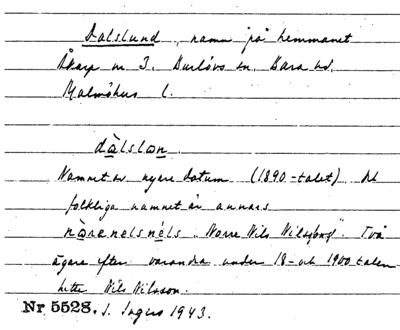 Dalslund, namn på hemmanet
Åkarp nr 3. Burlövs sn. Bara hd.
Malmöhus l.
dàlslɷn.
Namnet av nyare datum (1890-talet). Det
folkliga namnet är annars
nɷ̀renelsnéls „Norre Nils Nilssons". Två
ägare efter varandra under 18- och 1900 talen
hette Nils Nilsson.
Nr 5528. S. 1943.